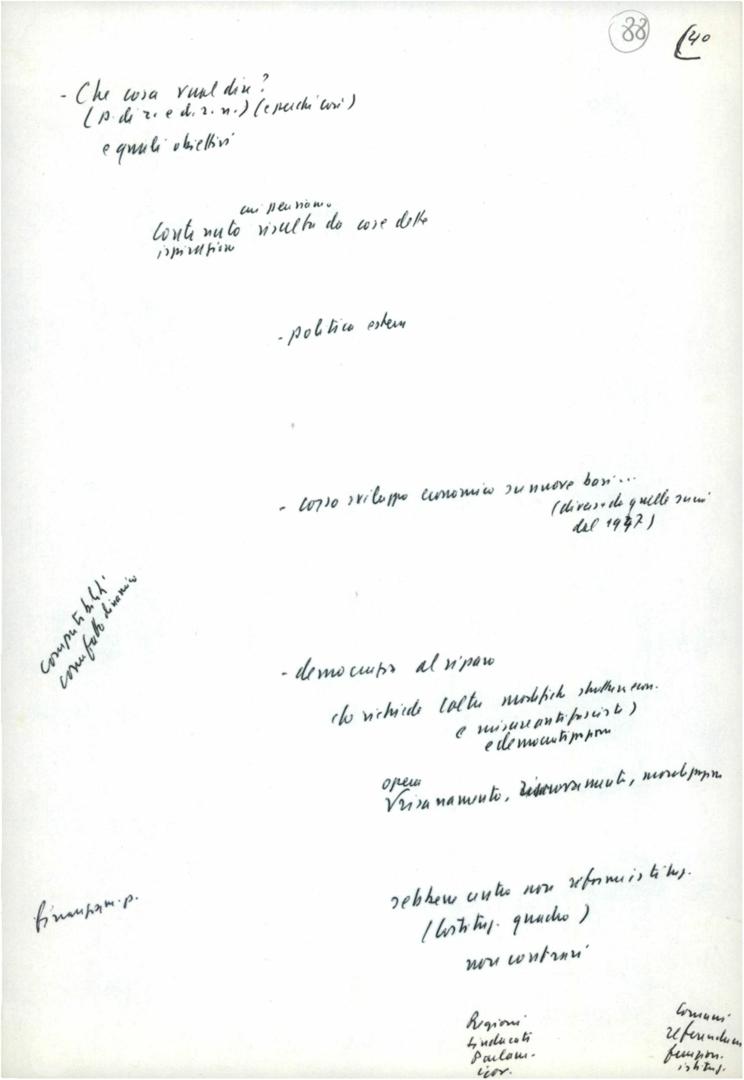 88
40
- Che cosa vuol dire?
(p. di r. e d. r. n.) (e perché così)
e quali obiettivi
cui pensiamo
Contenuto risulta da cose dette
ispirazione
- politica estera
- corso sviluppo economico su nuove basi...
(diverse da quelle seguì
dal 1947)
compatibilità
con fatto dinamico
- democrazia al riparo
che richiede (altre modifiche strutture econ.
e misure antifasciste)
e democratizzazione
opera
risanamento, rinnovamento, moralizzazione
sebbene centro non riforme istituz.
(Costituz. quadro)
non contrari
finanziam. p.
Regioni
Sindacati
Parlam.
gov.
Comuni
referendum
funzion.
istituz.